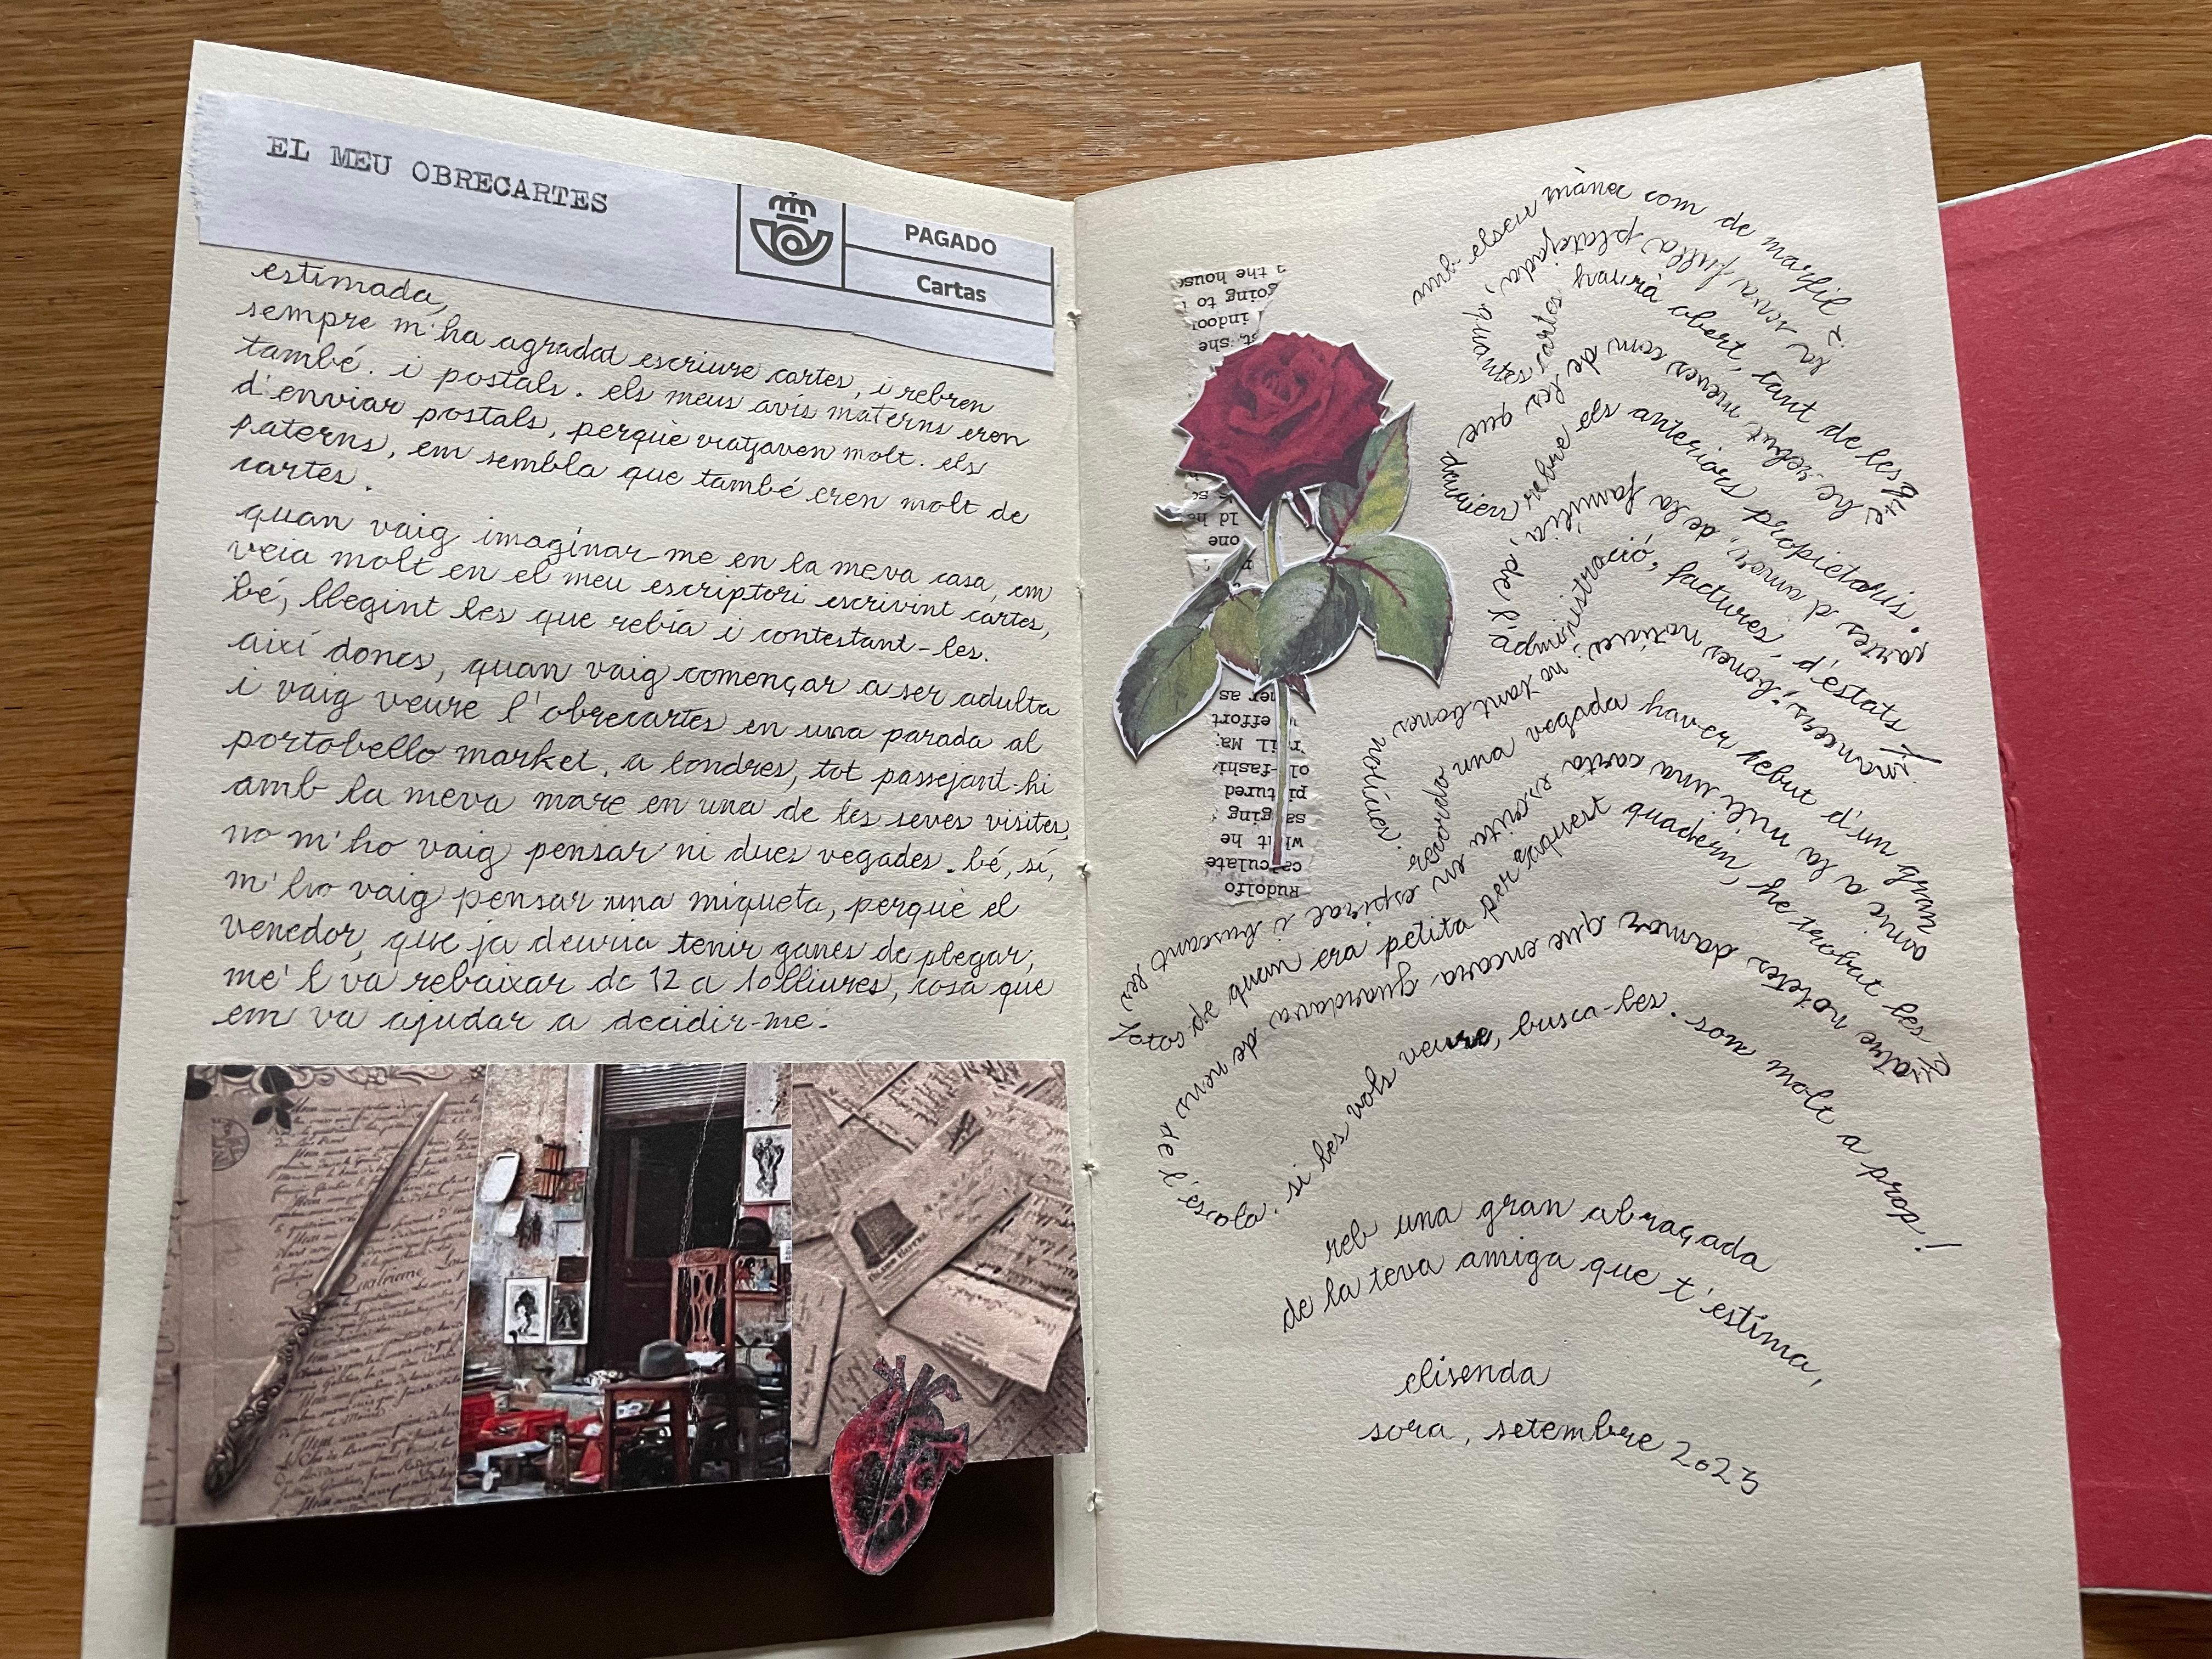 EL MEU OBRECARTES
PAGADO
Cartas
estimada,
sempre m'ha agradat escriure cartes, i rebren
també. i postals. els meus avis materns eren
d'enviar postals, perquè viatjaven molt. els
paterns, em sembla que també eren molt de
cartes.
quan vaig imaginar-me en la meva casa, em
veia molt en el meu escriptori escrivint cartes,
bé, llegint les que rebia i contestant-les.
així doncs, quan vaig començar a ser adulta
i vaig veure l'obrecartes en una parada al
portobello market, a londres, tot passejant-hi
amb la meva mare en una de les seves visites,
no m'ho vaig pensar ni dues vegades. bé, sí,
m'ho vaig pensar una miqueta, perquè el
venedor, que ja deuria tenir ganes de plegar,
me'l va rebaixar de 12 a 10 lliures, cosa que
em va ajudar a decidir-me.
amb elseu mànec com de marfil i
la seva fulla platejada, quantes
cartes haurà obert, tant de les que
he rebut meves com de les que
devien rebre els anteriors propietaris.
cartes d'amor, de la família, de l'
administració, factures, d'estats
financers; bones notícies, no tant bones
notícies.
recordo una vegada haver rebut d'un gran
amic a la mili una carta escrita en espiral i buscant les
fotos de quan era petita per aquest quadern, he trobat les
notetes d'amor que encara guardava de nens de l'escola.
si les vols veure, busca-les. som molt a prop!
reb una gran abraçada
de la teva amiga que t'estima,
elisenda
sora, setembre 2023
Rudolfo
calculate
he
pictured
effort
her as
one
she
going to
the house